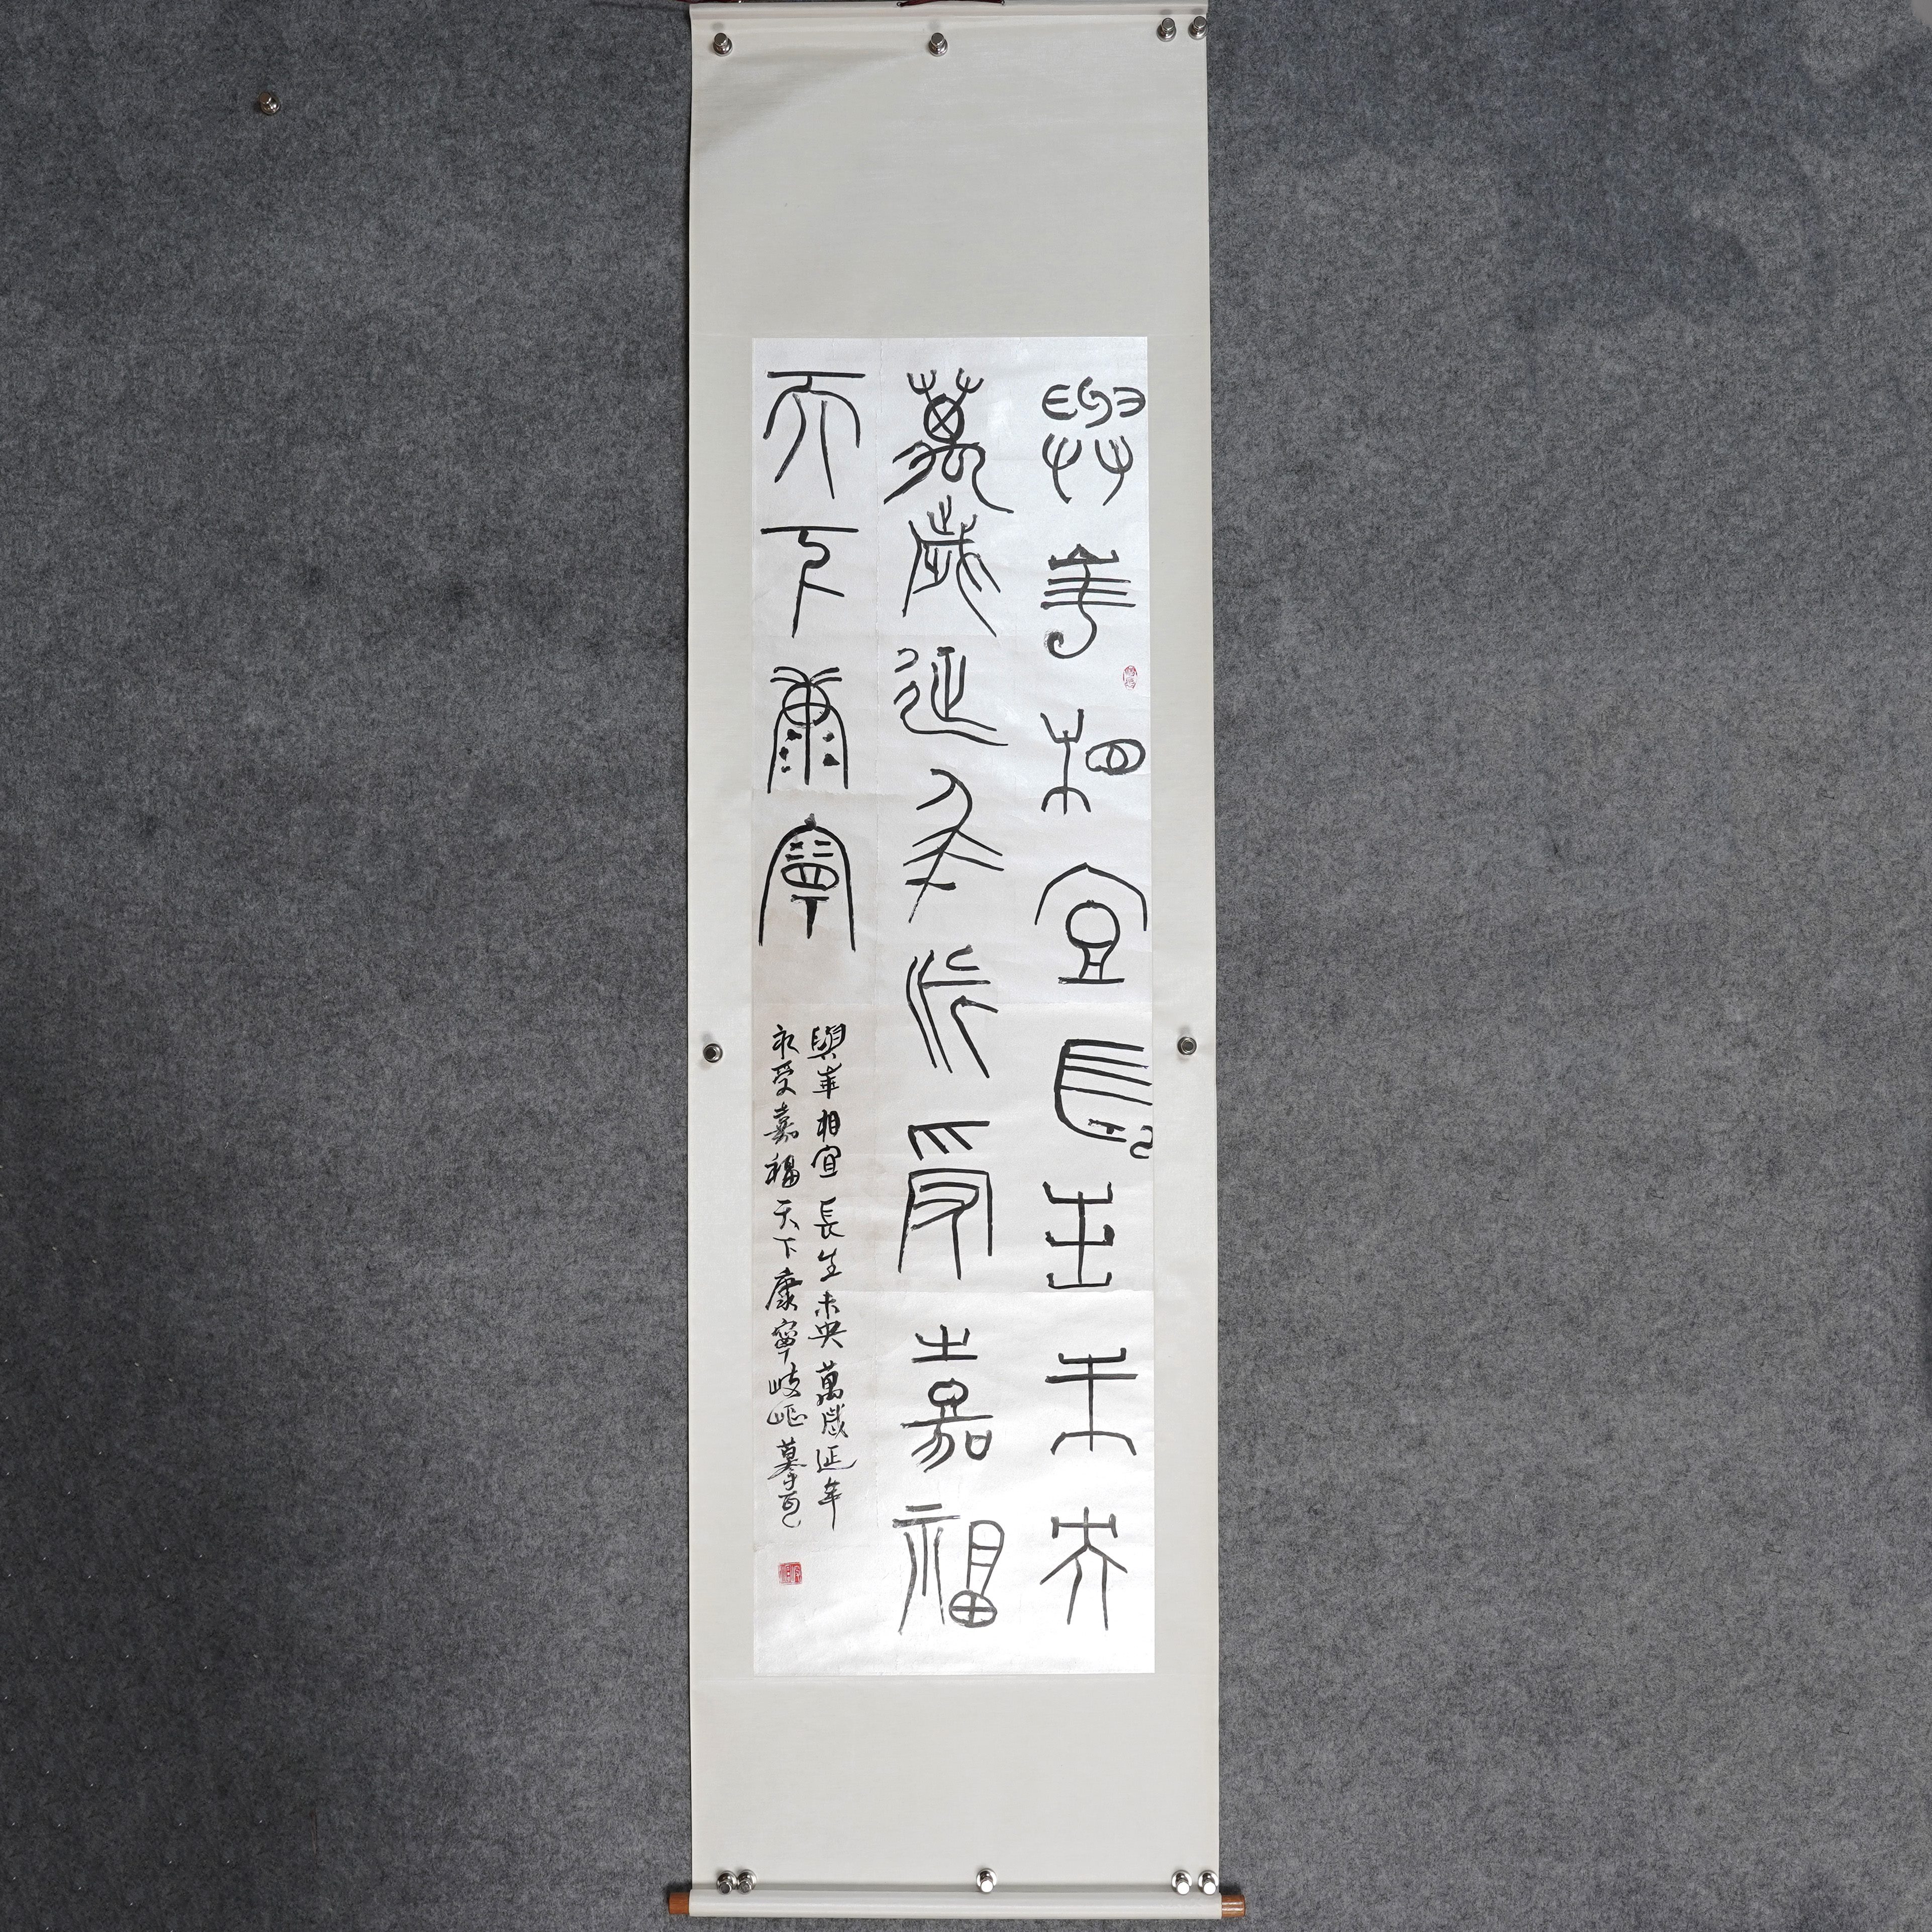 與華相宜長生未央
萬歲延年永受嘉福
天下康寧
與華相宜長生未央萬歲延年
永受嘉福天下康寧岐嶇摹瓦